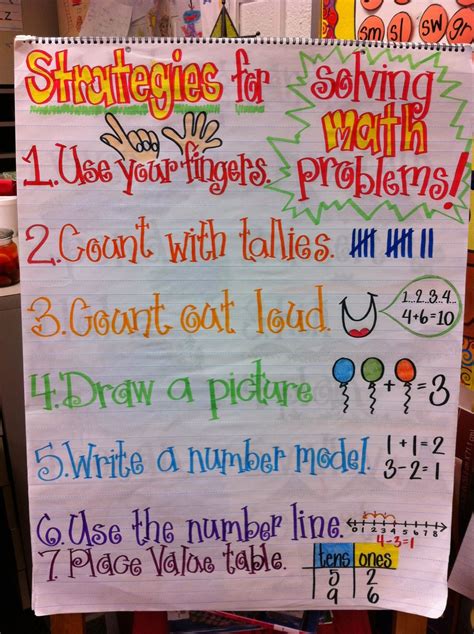 sm sl sw gr
Strategies for
solving
math
problems!
1. Use your fingers.
2. Count with tallies.
3. Count out loud.
1...2...3...4...
4+6=10
4. Draw a picture
+ = 3
5. Write a number model.
1+1=2
3-2=1
6. Use the number line.
0 1 2 3 4 5 6 7 8
4-3=1
7. Place Value table.
tens ones
5 2
9 6